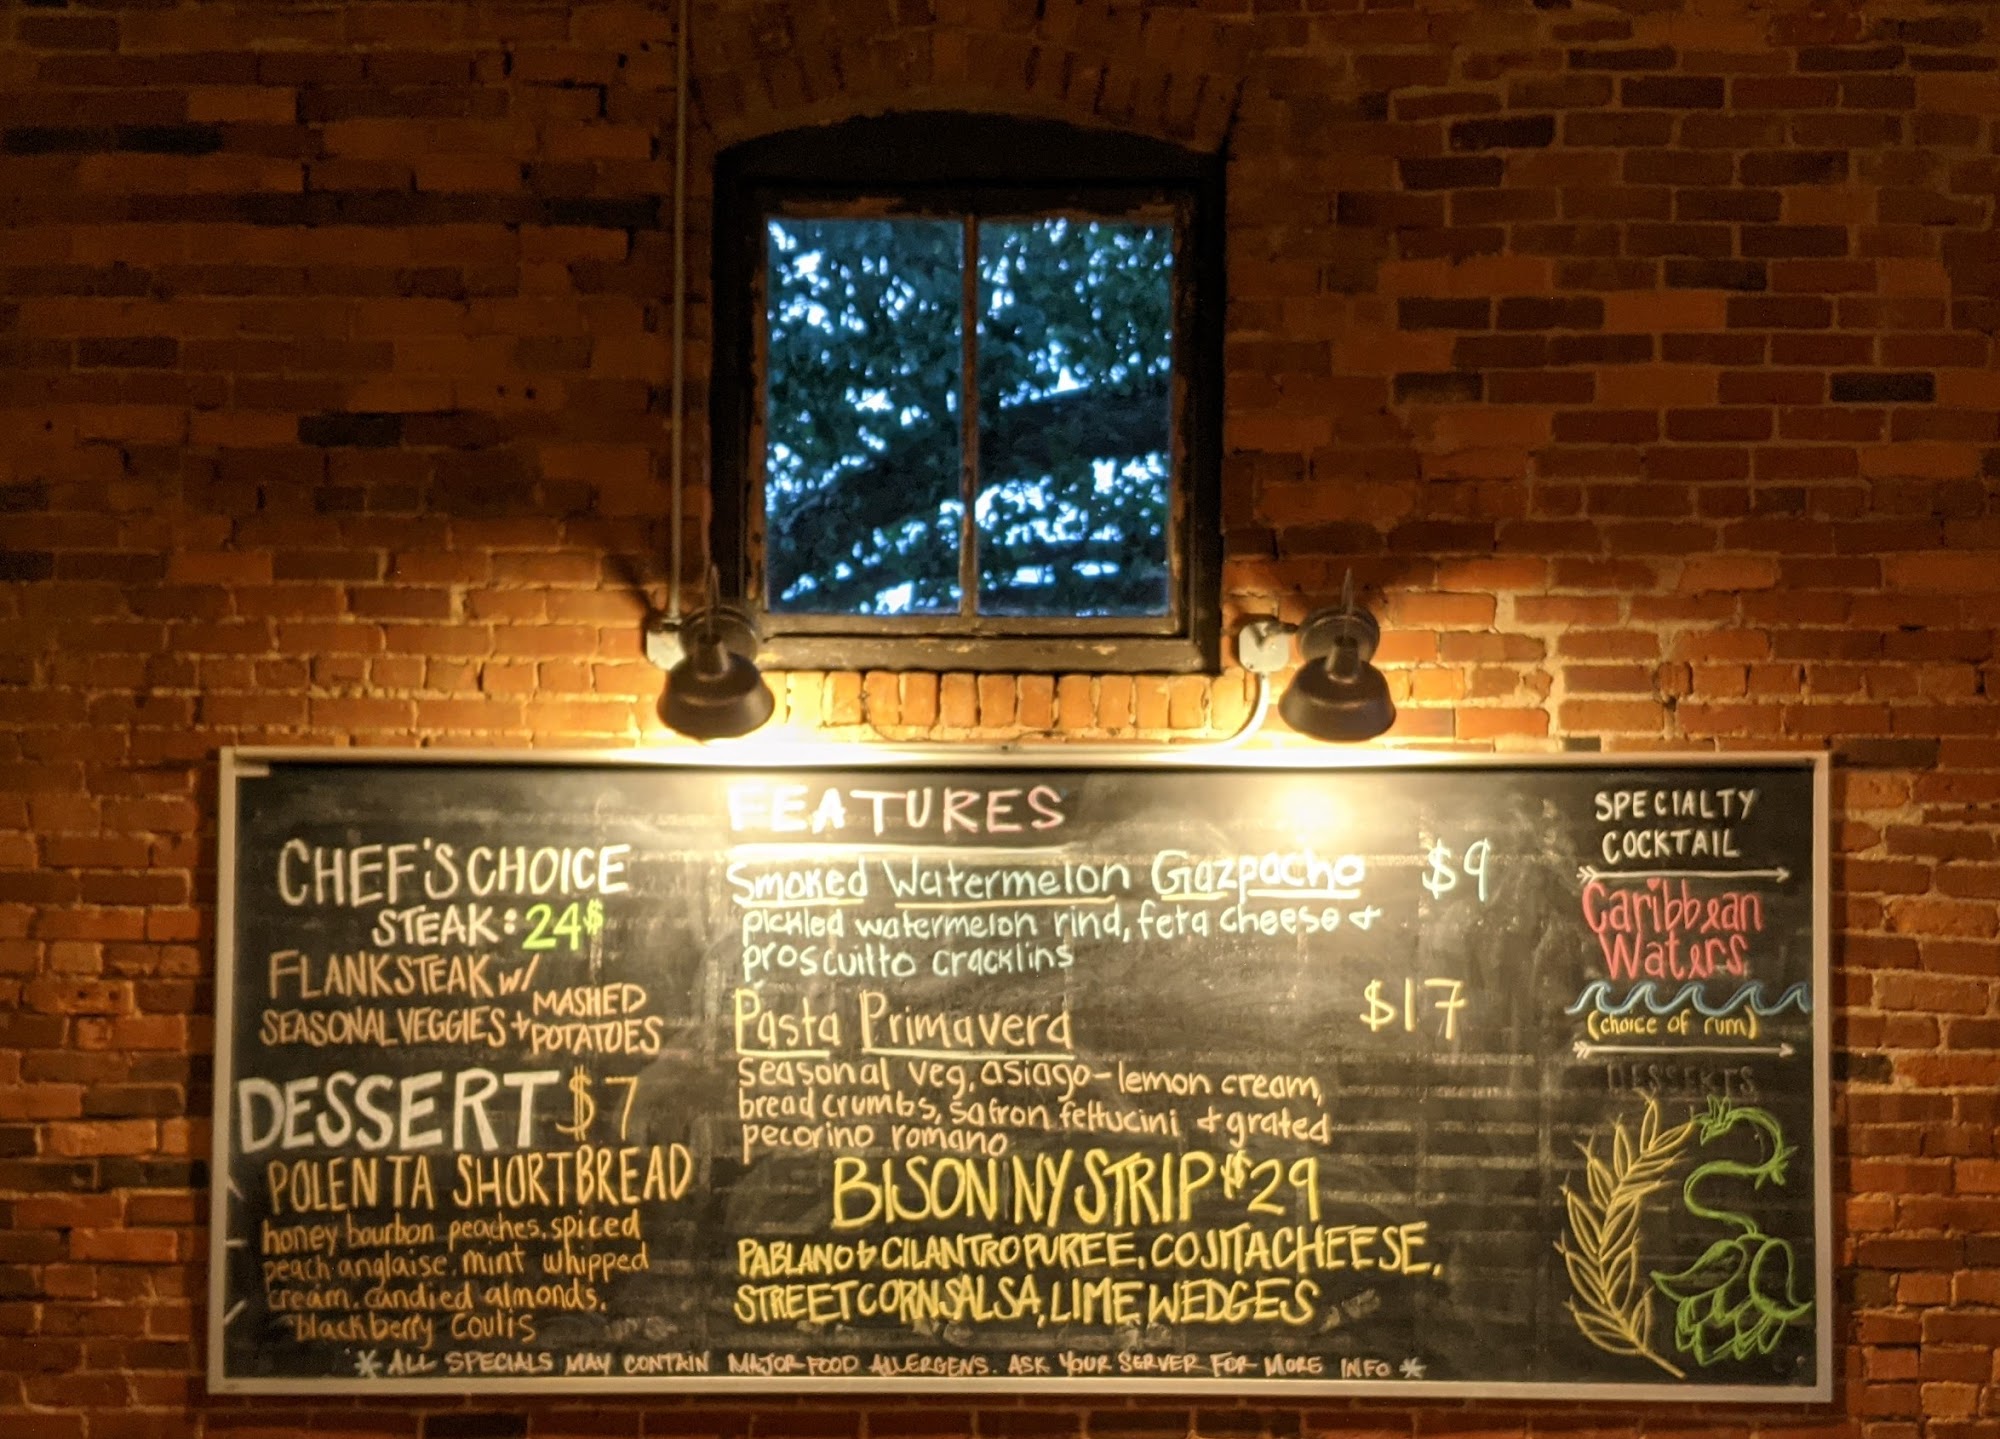 CHEF'S CHOICE
STEAK: 24$
FLANK STEAK w/
SEASONAL VEGGIES + MASHED
POTATOES
DESSERT $7
POLENTA SHORTBREAD
honey bourbon peaches, spiced
peach anglaise, mint whipped
cream, candied almonds,
blackberry coulis
FEATURES
Smoked Watermelon Gazpacho $9
pickled watermelon rind, feta cheese +
proscuitto cracklins
Pasta Primavera $17
seasonal veg, asiago-lemon cream,
bread crumbs, safron fettucini + grated
pecorino romano
BISON NY STRIP $29
PABLANO & CILANTRO PUREE, COJITA CHEESE,
STREET CORN SALSA, LIME WEDGES
SPECIALTY
COCKTAIL
Caribbean
Waters
(choice of rum)
DESSERTS
* ALL SPECIALS MAY CONTAIN MAJOR FOOD ALLERGENS. ASK YOUR SERVER FOR MORE INFO *